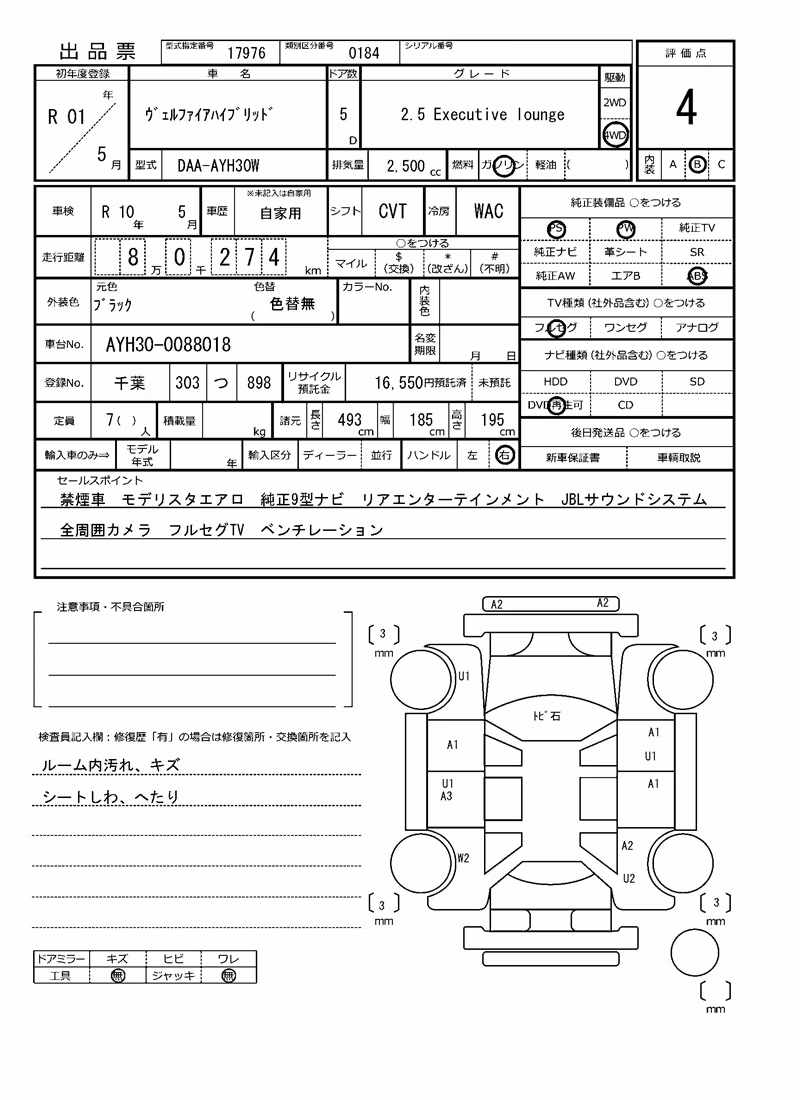 出品票 型式指定番号 17976 類別区分番号 0184 シリアル番号
評価点
4
内装 A B C
初年度登録 車名 ドア数 グレード 駆動
R 01 年 5 月 ヴェルファイアハイブリッド 5 D 2.5 Executive lounge 2WD 4WD
型式 DAA-AYH30W 排気量 2,500 cc 燃料 ガソリン 軽油 ( )
車検 R 10 年 5 月 車歴 ※未記入は自家用 自家用 シフト CVT 冷房 WAC
走行距離 8 万 0 千 2 7 4 km ○をつける
マイル $ (交換) * (改ざん) # (不明)
外装色 元色 ブラック 色替 色替無 ( ) カラーNo. 内装色
車台No. AYH30-0088018 名変期限 月 日
登録No. 千葉 303 つ 898 リサイクル預託金 16,550円預託済 未預託
定員 7( ) 人 積載量 kg 諸元 長さ 493 cm 幅 185 cm 高さ 195 cm
輸入車のみ⇒ モデル年式 年 輸入区分 ディーラー 並行 ハンドル 左 右
純正装備品 ○をつける
PS PW 純正TV
純正ナビ 革シート SR
純正AW エアB ABS
TV種類(社外品含む)○をつける
フルセグ ワンセグ アナログ
ナビ種類(社外品含む)○をつける
HDD DVD SD
DVD再生可 CD
後日発送品 ○をつける
新車保証書 車輌取説
セールスポイント
禁煙車 モデリスタエアロ 純正9型ナビ リアエンターテインメント JBLサウンドシステム
全周囲カメラ フルセグTV ベンチレーション
注意事項・不具合箇所
検査員記入欄：修復歴「有」の場合は修復箇所・交換箇所を記入
ルーム内汚れ、キズ
シートしわ、へたり
ドアミラー キズ ヒビ ワレ
工具 無 ジャッキ 無
A2 A2
3 mm
3 mm
U1
トビ石
A1
A1
U1
U1
A3
A1
W2
A2
U2
3 mm
3 mm
mm